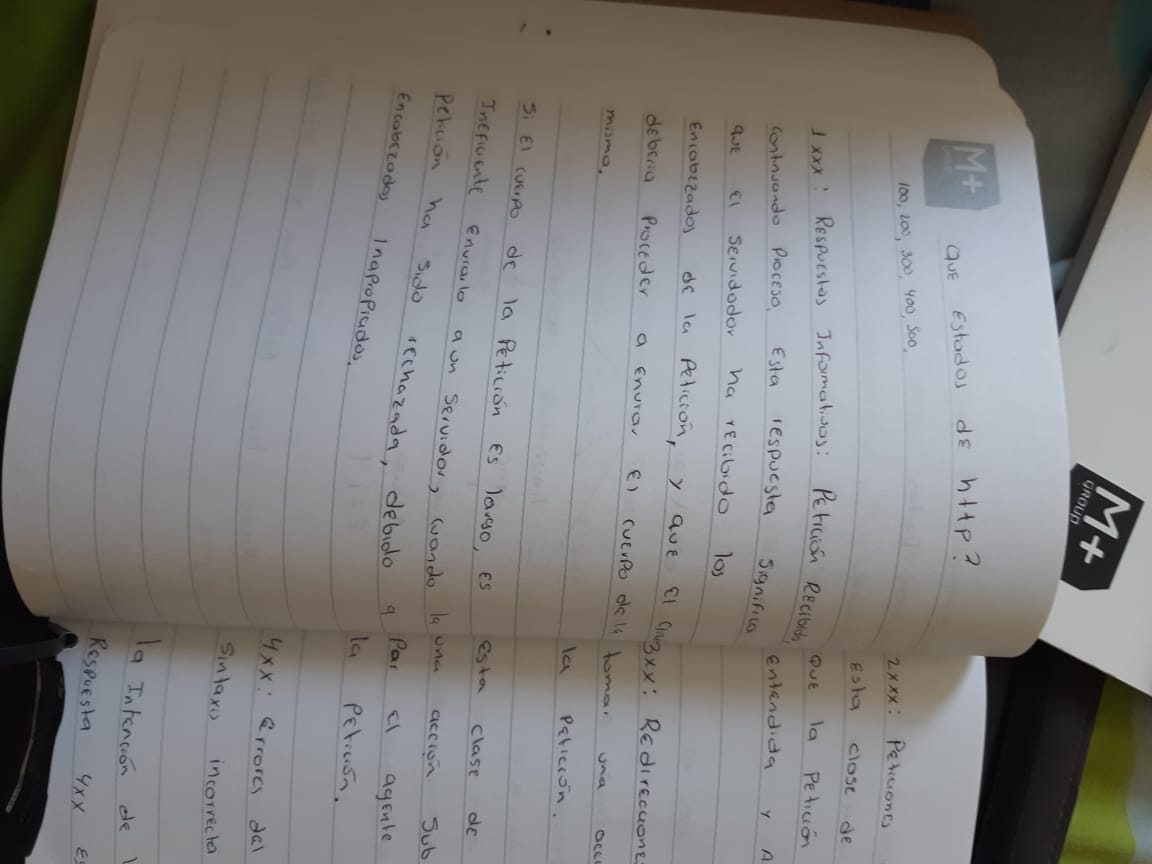 M+
GROUP
QUE Estados de http?
100, 200, 300, 400, 500.
1xxx: Respuestas Informativas: Petición Recibida,
continuando proceso. Esta respuesta significa
que el servidodor ha recibido los
encabezados de la petición, y que el
deberia proceder a enviar el cuerpo de la
misma.
Si el cuerpo de la Petición es largo, es
Ineficiente enviarlo a un servidor, cuando la
petición ha sido rechazada, debido a
encabezados Inapropiados.
2xxx: Peticiones
Esta clase de
que la petición
entendida y
3xx: Redirecciones
tomar una
la petición.
esta clase de
una acción sub
Por el agente
la petición.
4xx: Errores del
Sintaxis incorrecta
la Intención de
Respuesta 4xx
M+
GROUP